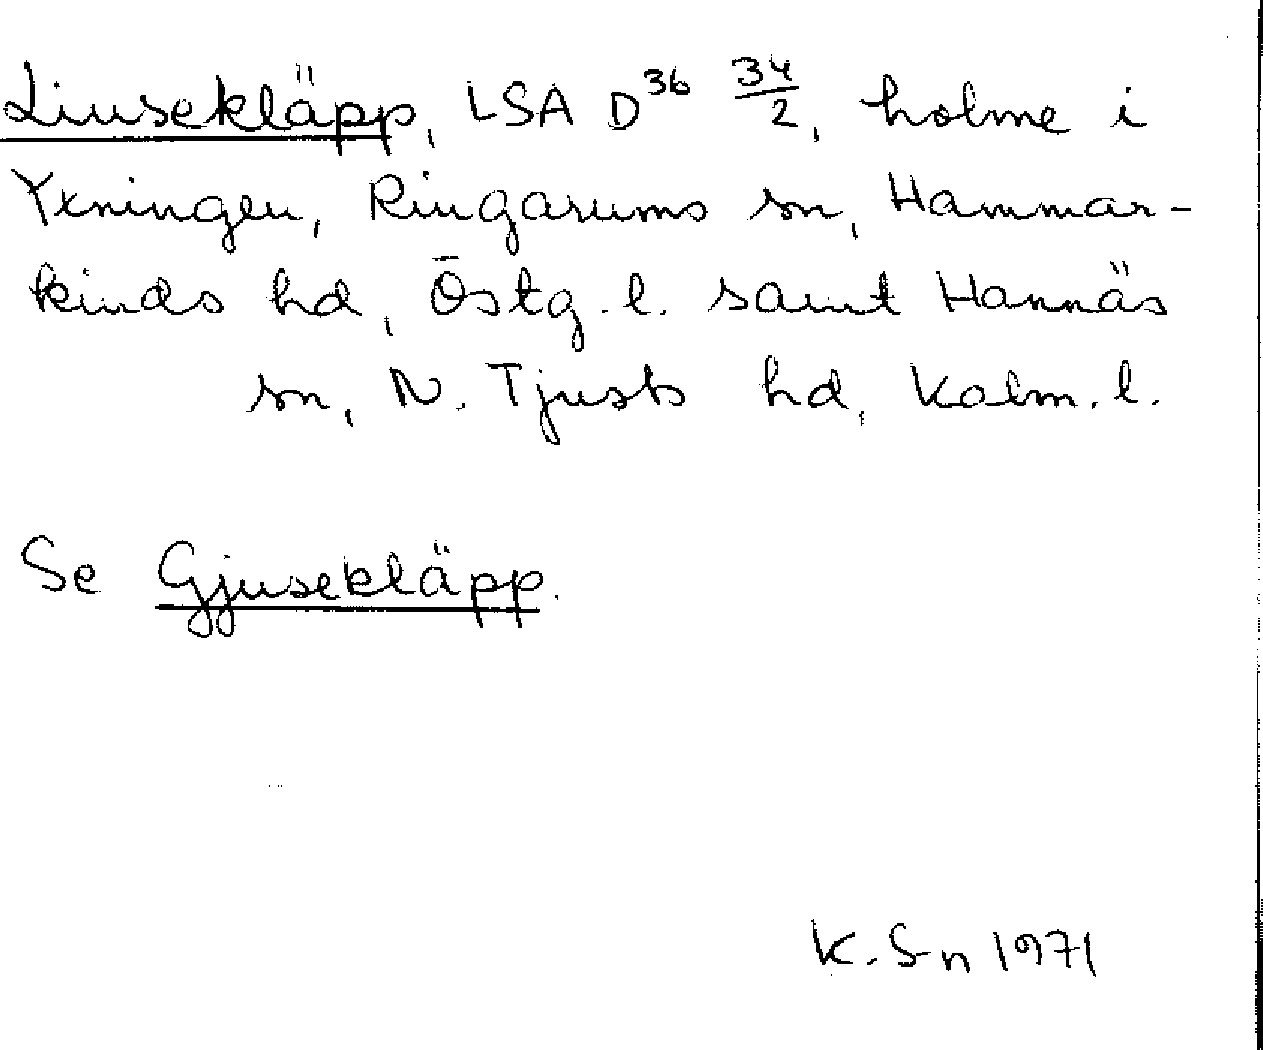 Liusekläpp, LSA D³⁶ 34/2, holme i
Yxningen, Ringarums sn, Hammar-
kinds hd, Östg. l. samt Hannäs
sn, N. Tjusts hd, Kalm. l.
Se Gjusekläpp.
K. S-n 1971